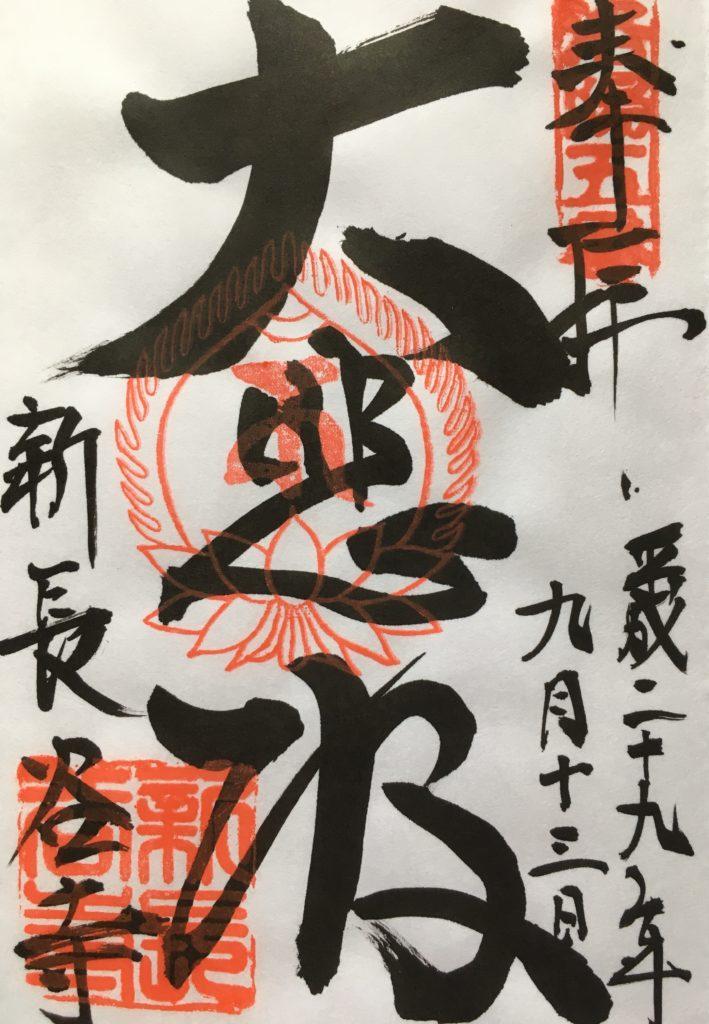 奉拝
平成二十九年
九月十三日
大悲殿
新長谷寺
新長谷寺